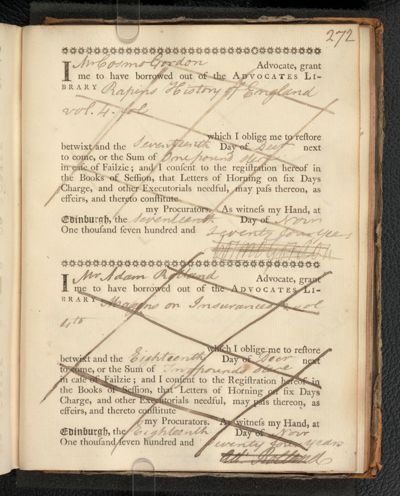 272
I Mr Cosmo Gordon Advocate, grant
me to have borrowed out of the ADVOCATES LI-
BRARY Rapins History of England
vol. 4. fol
which I oblige me to reſtore
betwixt and the Seventeenth Day of Decr next
to come, or the Sum of One pound
in caſe of Failzie; and I conſent to the regiſtration hereof in
the Books of Seſſion, that Letters of Horning on ſix Days
Charge, and other Executorials needful, may paſs thereon, as
effeirs, and thereto conſtitute
my Procurators. As witneſs my Hand, at
Edinburgh, the Seventeenth Day of Novr
One thouſand ſeven hundred and Seventy four years
I Mr Adam Rolland Advocate, grant
me to have borrowed out of the ADVOCATES LI-
BRARY Magens on Insurances 2 vol
4to
which I oblige me to reſtore
betwixt and the Eighteenth Day of Decr next
to come, or the Sum of pound
in caſe of Failzie; and I conſent to the Regiſtration hereof in
the Books of Seſſion, that Letters of Horning on ſix Days
Charge, and other Executorials needful, may paſs thereon, as
effeirs, and thereto conſtitute
my Procurators. As witneſs my Hand, at
Edinburgh, the Eighteenth Day of Novr
One thouſand ſeven hundred and Seventy four years
Ad: Rolland